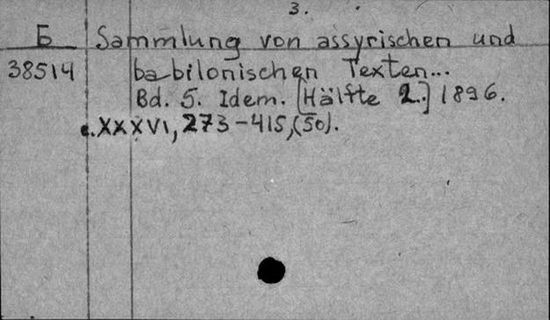 3.
Б Sammlung von assyrischen und
38514 babilonischen Texten...
Bd. 5. Idem. [Hälfte 2.] 1896.
с. XXXVI, 273-415, (50).